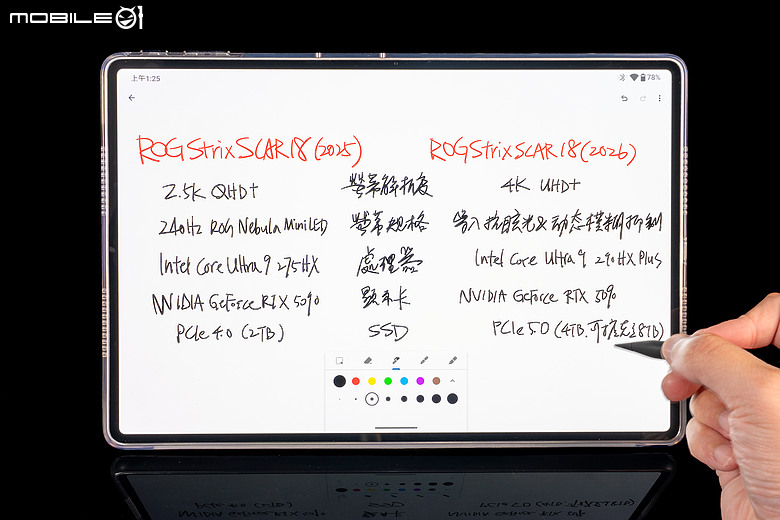 MOBILE01
上午1:25 78%
ROG Strix SCAR 18 (2025) ROG Strix SCAR 18 (2026)
2.5K QHD+ 螢幕解析度 4K UHD+
240Hz ROG Nebula MiniLED 螢幕規格 抗眩光&动态模糊抑制
Intel Core Ultra 9 275HX 處理器 Intel Core Ultra 9 290HX Plus
NVIDIA GeForce RTX 5090 顯示卡 NVIDIA GeForce RTX 5090
PCIe 4.0 (2TB) SSD PCIe 5.0 (4TB,可擴充至8TB)